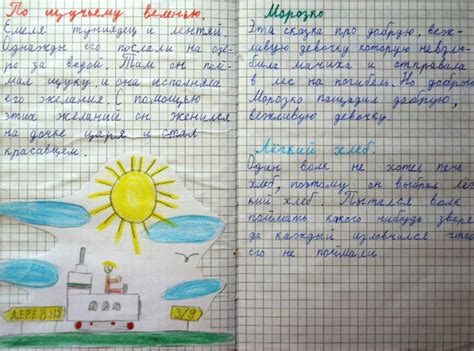 По щучьему веленью.
Емеля тунеядец и лентяй.
Однажды его послали на озе-
ро за водой. Там он пой-
мал щуку, и она исполняла
его желания. С помощью
этих желаний он женился
на дочке царя и стал
красавцем.
ДЕРЕВНЯ
3/9
Морозко
Эта сказка про добрую, веж-
ливую девочку которую невзлю-
била мачиха и отправила
в лес на погибель. Но
Морозко пощадил добрую,
вежливую девочку.
Лёгкий хлеб.
Один волк не хотел печь
хлеб, поэтому он выбрал лёг
кий хлеб. Пытался волк
поймать какого нибудь звер
да каждый изловчился чтоб
его не поймали.